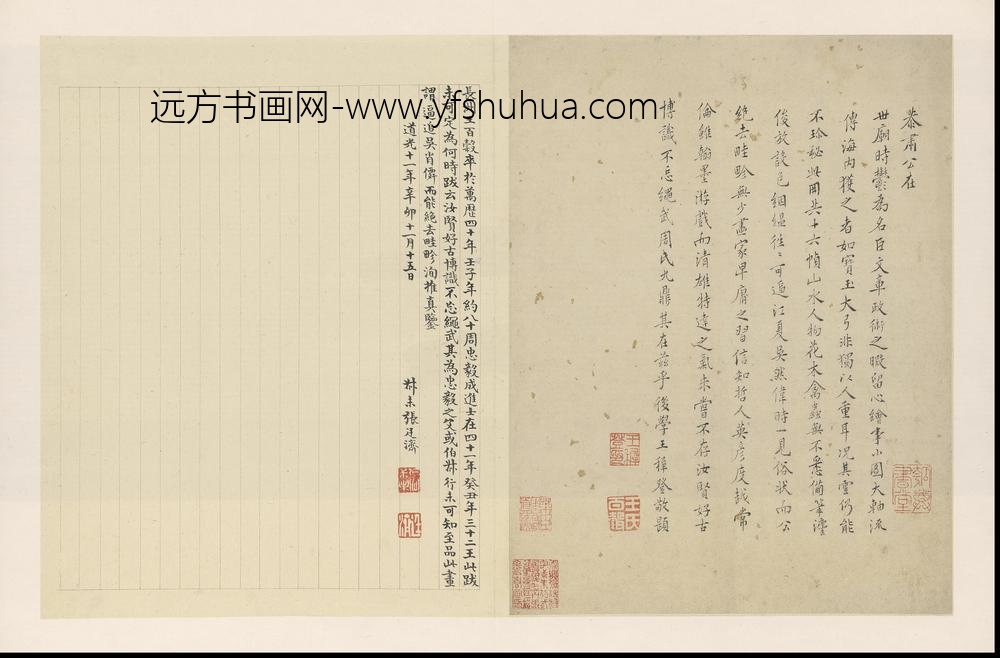 恭肅公在
世廟時鬱為名臣文章政術之暇留心繪事小圖大軸流
傳海內獲之者如寶玉大弓非獨以人重耳況其雲仍能
不珍秘此冊共十六幀山水人物花木禽蟲無不悉備筆瀍
俊放設色絪縕往往可逼江夏吳然偉時一見俗狀而公
絕去畦畛無少畫家卑膚之習信知哲人英彥度越常
倫雖翰墨游戲而清雄特達之氣未嘗不存汝賢好古
博識不忘繩武周氏九鼎其在茲乎後學王穉登敬題
王穉登
王氏百穀
長洲王百穀卒於萬歷四十年壬子年約八十周忠毅成進士在四十一年癸丑年三十二王此跋
未可定為何時跋云汝賢好古博識不忘繩武其為忠毅之父或伯叔行未可知至品此畫
謂逼近吳肖僊而能絕去畦畛洵推真鑒
道光十一年辛卯十一月十五日
叔未張廷濟
远方书画网-www.yfshuhua.com